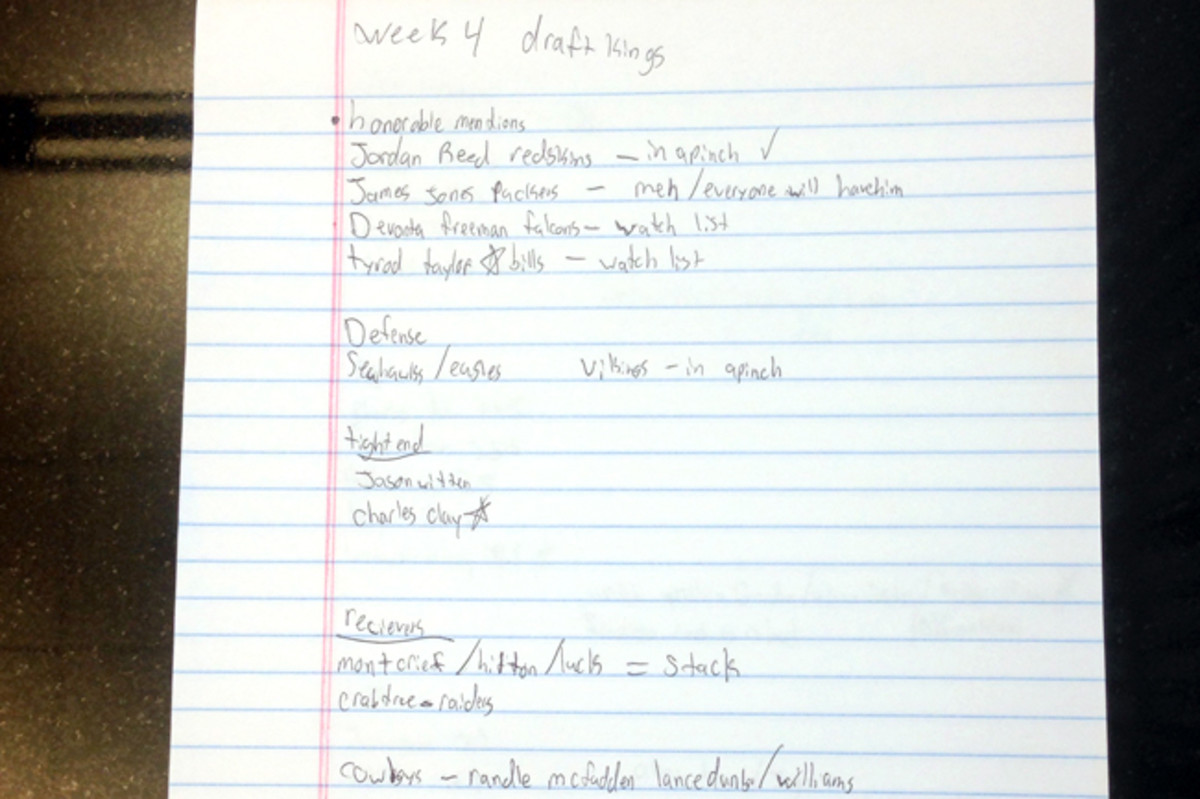 week 4 draft kings
• honorable mendions
Jordan Reed redskins – in apinch ✓
James Jones Packers – meh/everyone will havehim
Devonta freeman falcons – watch list
tyrod taylor ☆ bills – watch list
Defense
Seahawks/eagles vikings – in apinch
tight end
Jason witten
charles clay ☆
recievers
montcrief/hilton/luck = stack
crabtree - raiders
cowboys – randle mcfadden lancedunbar/williams